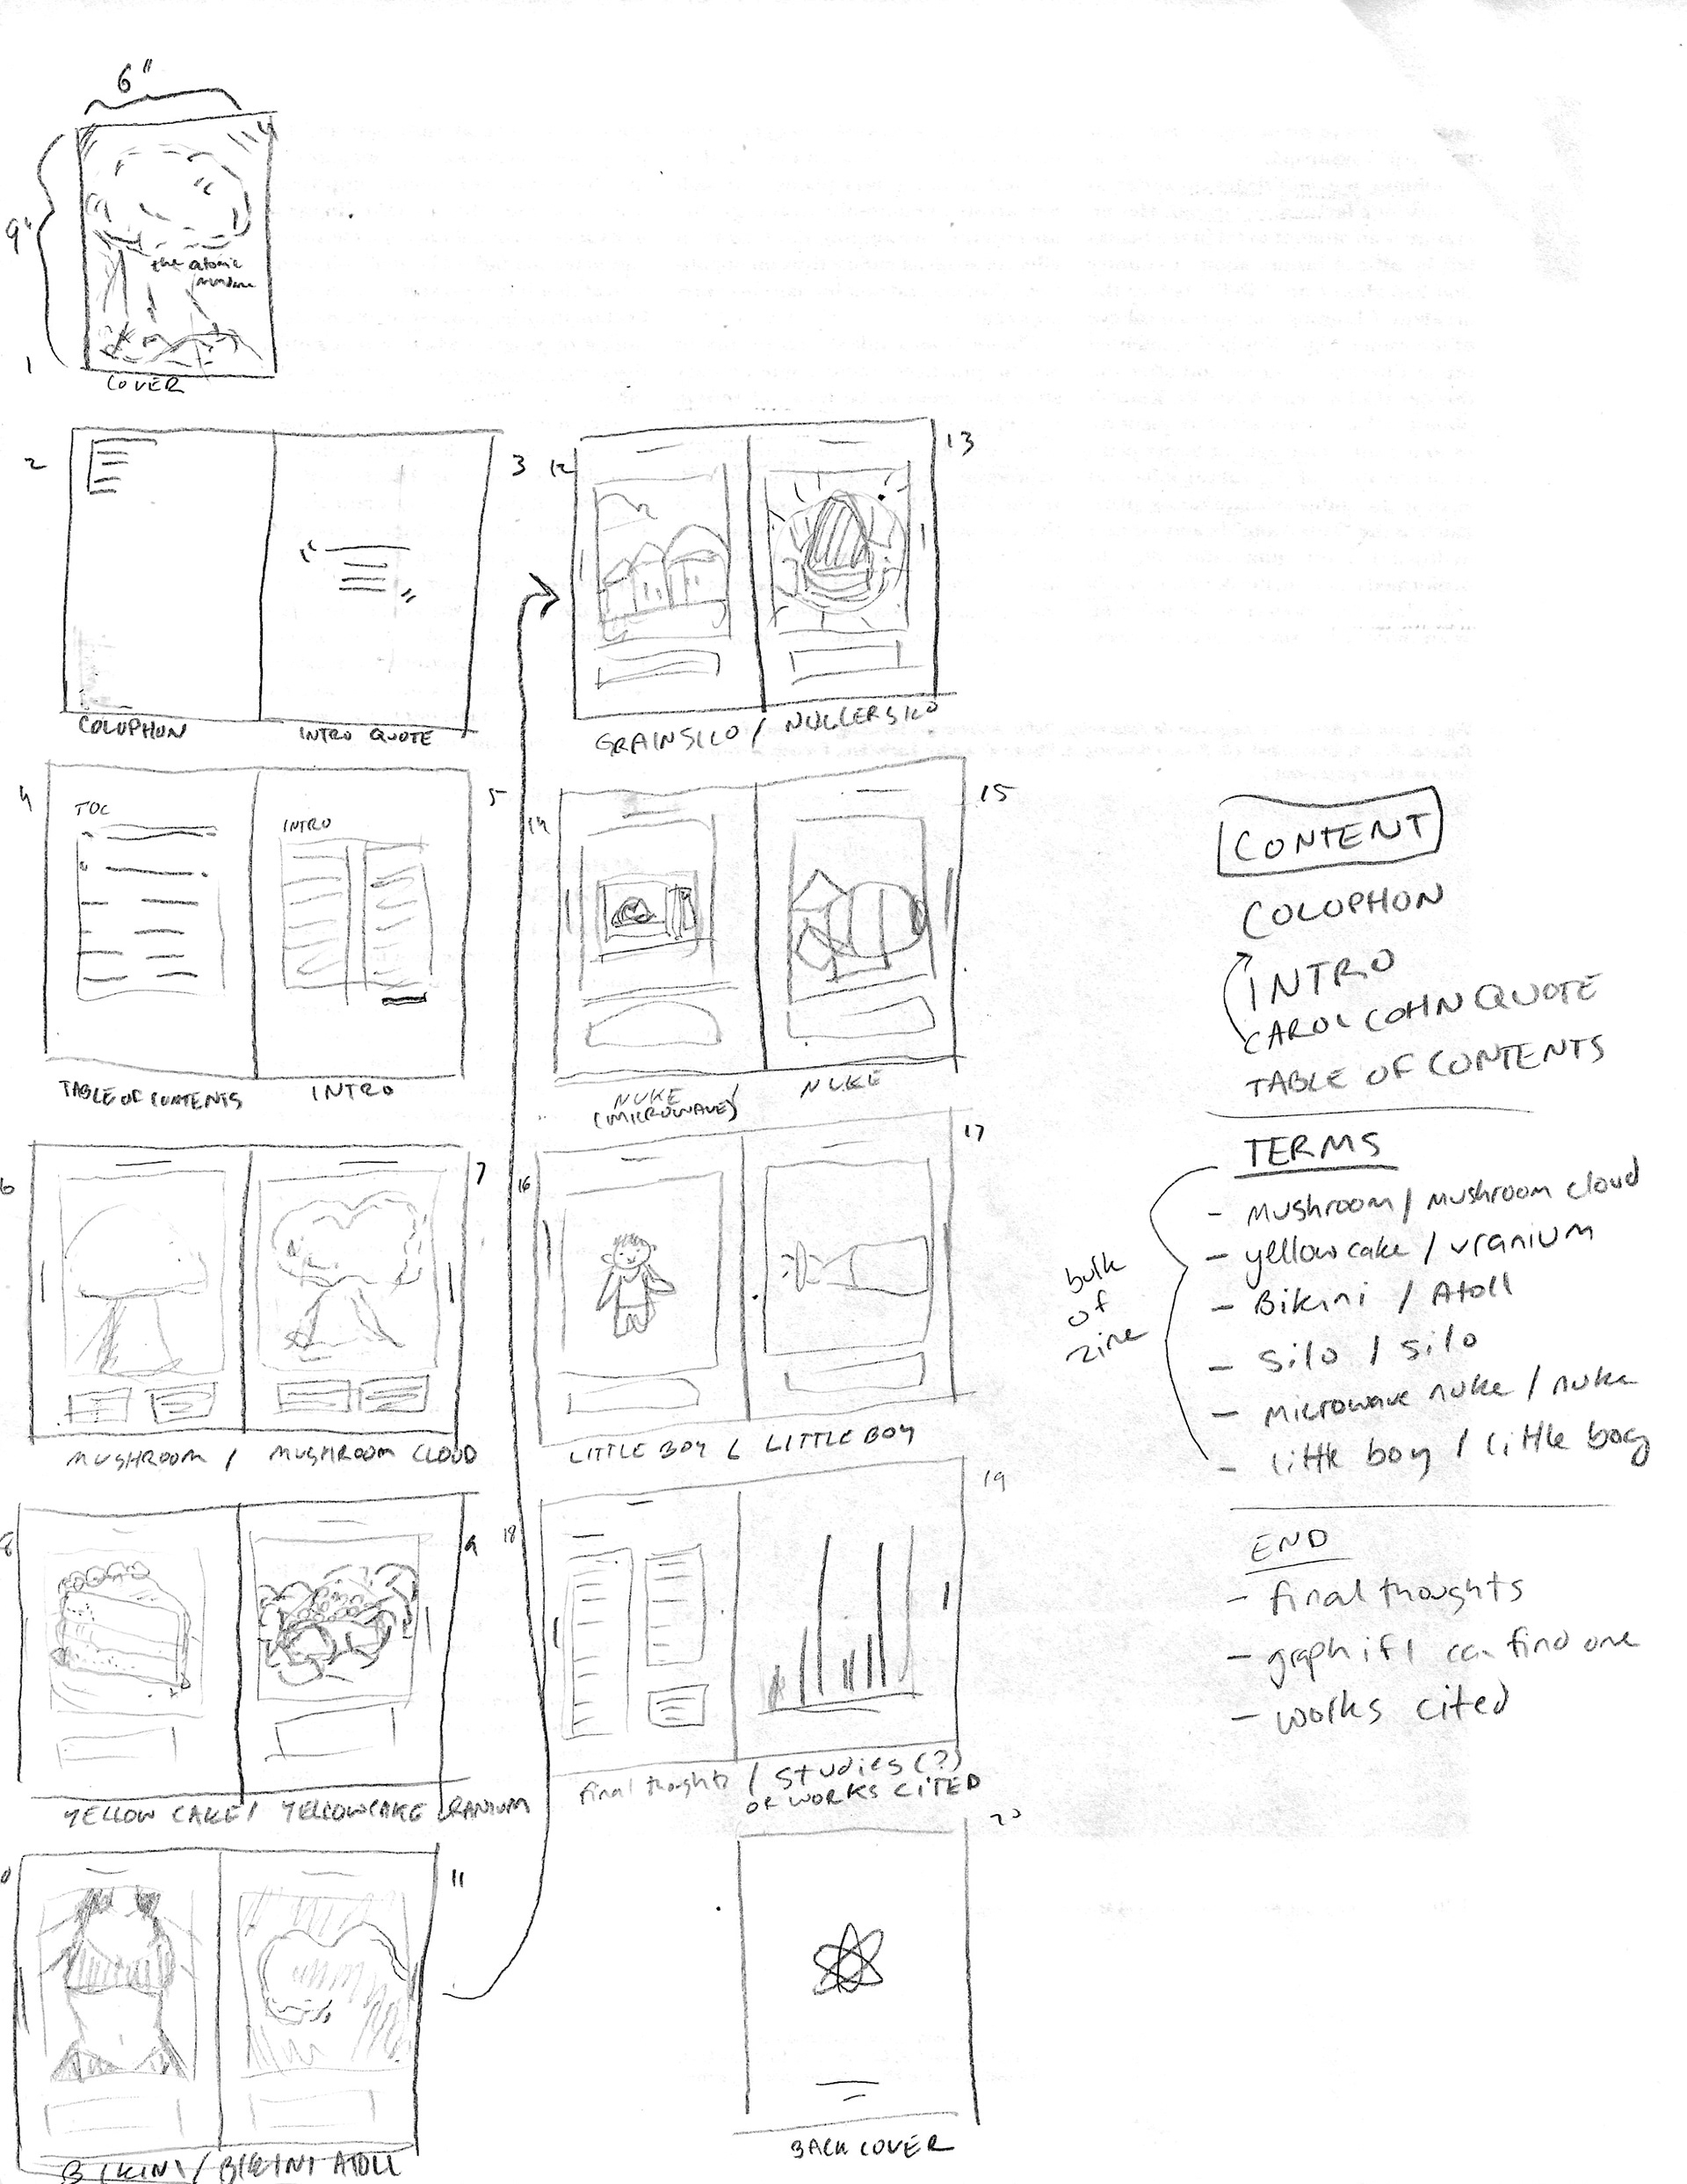 6"
9"
the atomic
1
COVER
2
3
COLOPHON
INTRO QUOTE
4
5
TOC
INTRO
TABLE OF CONTENTS
INTRO
6
7
MUSHROOM / MUSHROOM CLOUD
8
9
YELLOW CAKE / YELLOWCAKE URANIUM
0
11
BIKINI / BIKINI ATOLL
12
13
GRAIN SILO /
14
15
NUKE
(MICROWAVE) /
NUKE
16
17
LITTLE BOY / LITTLE BOY
18
19
final thoughts / STUDIES (?)
OR WORKS CITED
20
BACK COVER
CONTENT
COLOPHON
INTRO
CAROL COHN QUOTE
TABLE OF CONTENTS
TERMS
bulk
of
zine
- Mushroom / Mushroom cloud
- yellowcake / uranium
- Bikini / Atoll
- Silo / silo
- Microwave nuke / nuke
- little boy / little boy
END
- final thoughts
- graph if I can find one
- works cited